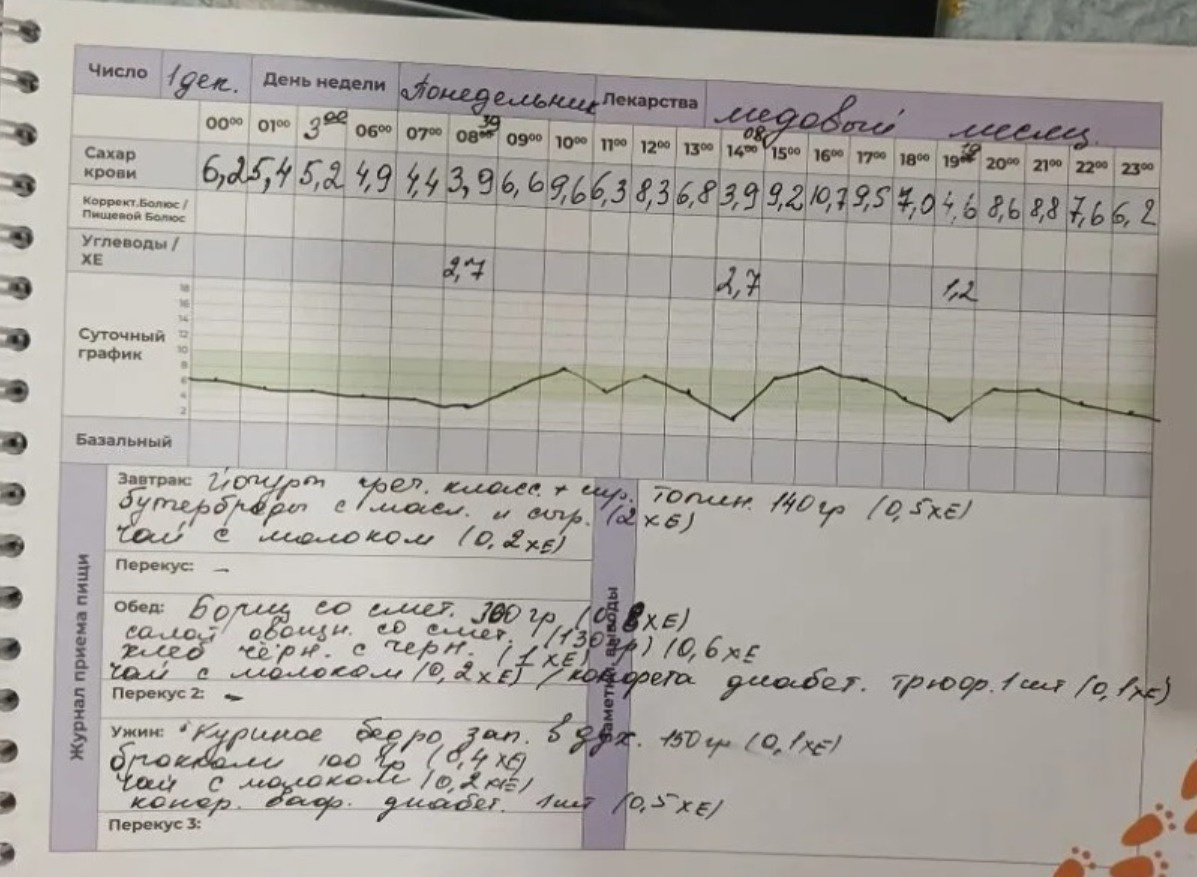 Число 1 дек. День недели Понедельник Лекарства медовый месяц.
00⁰⁰ 01⁰⁰ 3⁰⁰ 06⁰⁰ 07⁰⁰ 08³⁹ 09⁰⁰ 10⁰⁰ 11⁰⁰ 12⁰⁰ 13⁰⁰ 14⁰⁸ 15⁰⁰ 16⁰⁰ 17⁰⁰ 18⁰⁰ 19¹⁹ 20⁰⁰ 21⁰⁰ 22⁰⁰ 23⁰⁰
Сахар
крови 6,2 5,4 5,2 4,9 4,4 3,9 6,6 9,6 6,3 8,3 6,8 3,9 9,2 10,7 9,5 7,0 4,6 8,6 8,8 7,6 6,2
Коррект.Болюс /
Пищевой Болюс
Углеводы /
ХЕ 2,7 2,7 1,2
Суточный
график
18
16
14
12
10
8
6
4
2
Базальный
Журнал приема пищи
Завтрак: Йогурт греч. класс. + топин. 140 гр (0,5 ХЕ)
бутерброды с масл. и сыр. (2 ХЕ)
Чай с молоком (0,2 ХЕ)
Перекус: –
Обед: Борщ со смет. 300 гр (0,8 ХЕ)
салат овощн. со смет. (130 гр) (0,6 ХЕ
хлеб чёрн. с черн. (1 ХЕ)
Чай с молоком (0,2 ХЕ) / конфета диабет. трюф. 1 шт (0,1 ХЕ)
Перекус 2: –
Ужин: Куриное бедро зап. в дух. 150 гр (0,1 ХЕ)
брокколи 100 гр (0,4 ХЕ)
Чай с молоком (0,2 ХЕ)
конф. ваф. диабет. 1 шт (0,5 ХЕ)
Перекус 3:
Заметки, выводы